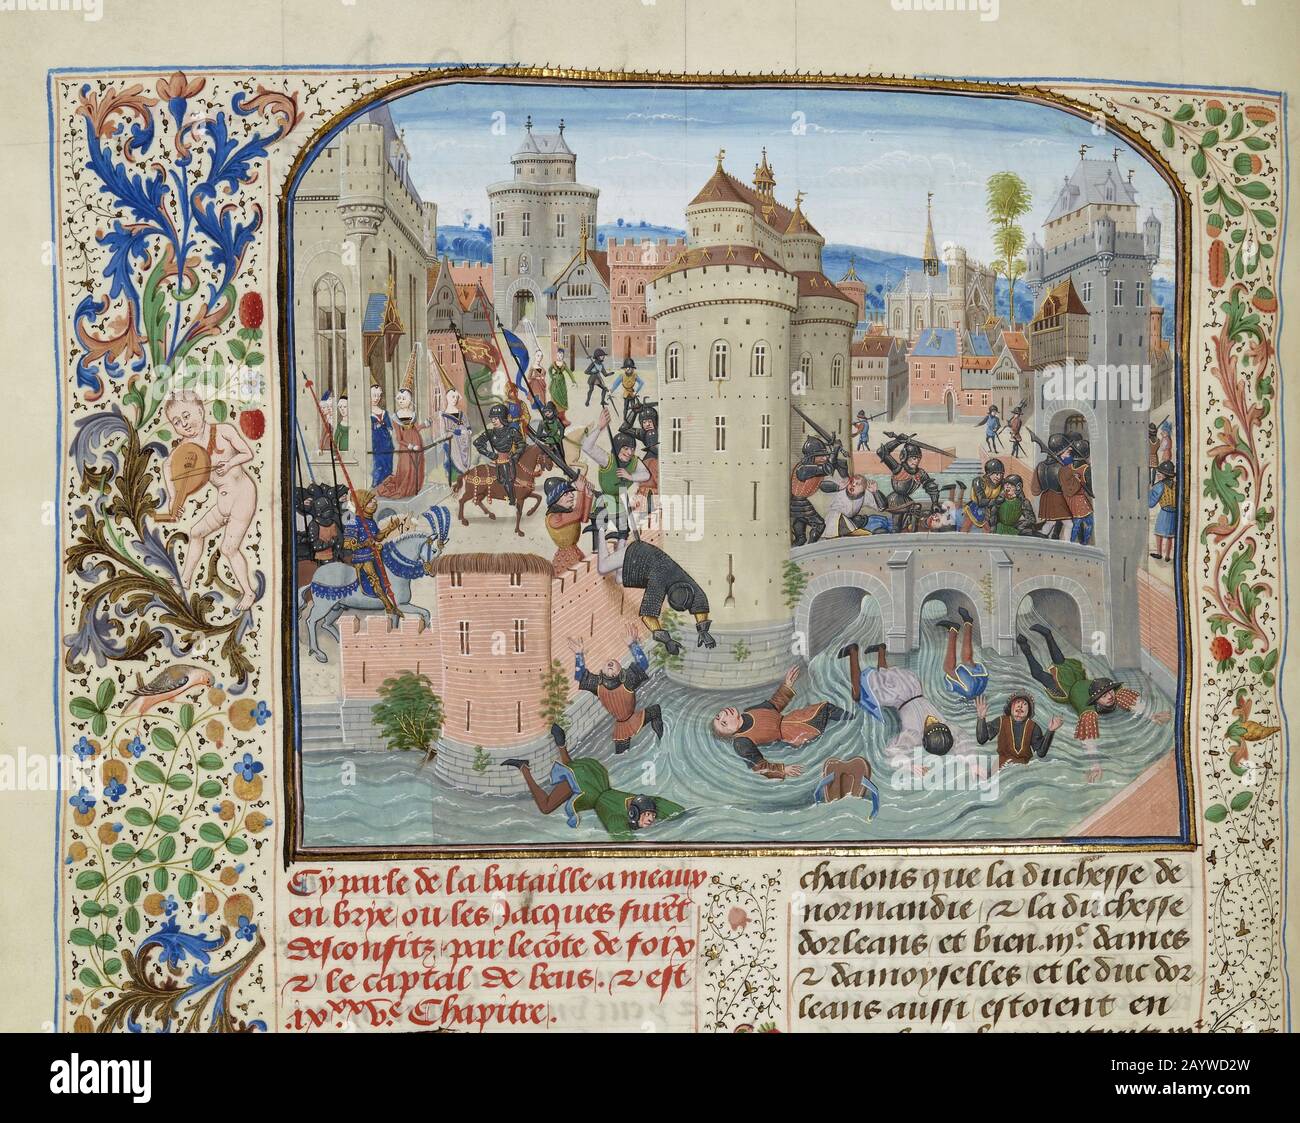 Cy parle de la bataille a meaux
en brye / ou les Jacques furēt
desconfitz / par le cōte de foix
⁊ le captal de beus . ⁊ est
.ixxx vᵉ. Chapitre.
chalons que la duchesse de
normandie / ⁊ la duchesse
dorleans et bien .iiiᶜ. dames
⁊ damoyselles et le duc dor
leans aussi estoient en
alamy
alamy
Image ID: 2AYWD2W
www.alamy.com